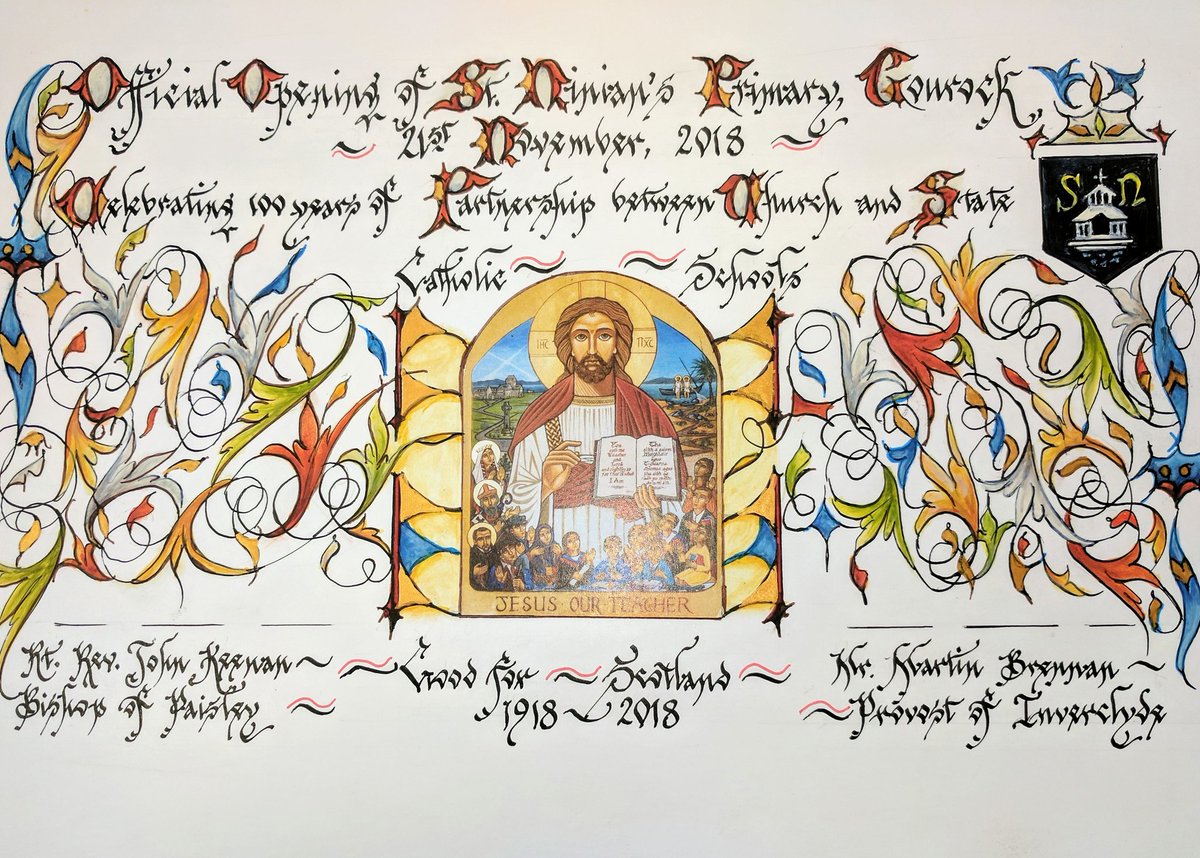 Official Opening of St. Ninian's Primary, Gourock,
~ 21st November, 2018 ~
Celebrating 100 years of Partnership between Church and State
Catholic ~ ~ Schools
S N
IHC ΠXC
You call me Teacher and Lord and rightly so for that is what I Am
JESUS OUR TEACHER
Rt. Rev. John Keenan ~
Bishop of Paisley ~
~ Good for ~ Scotland ~
1918 ~ 2018
Mr. Martin Brennan ~
~ Provost of Inverclyde